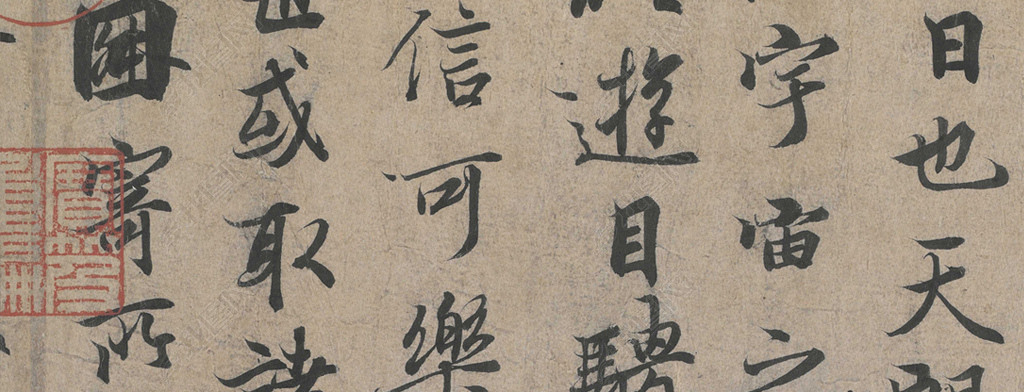 日也天朗
宇宙之
遊目騁
信可樂
或取諸
因寄所